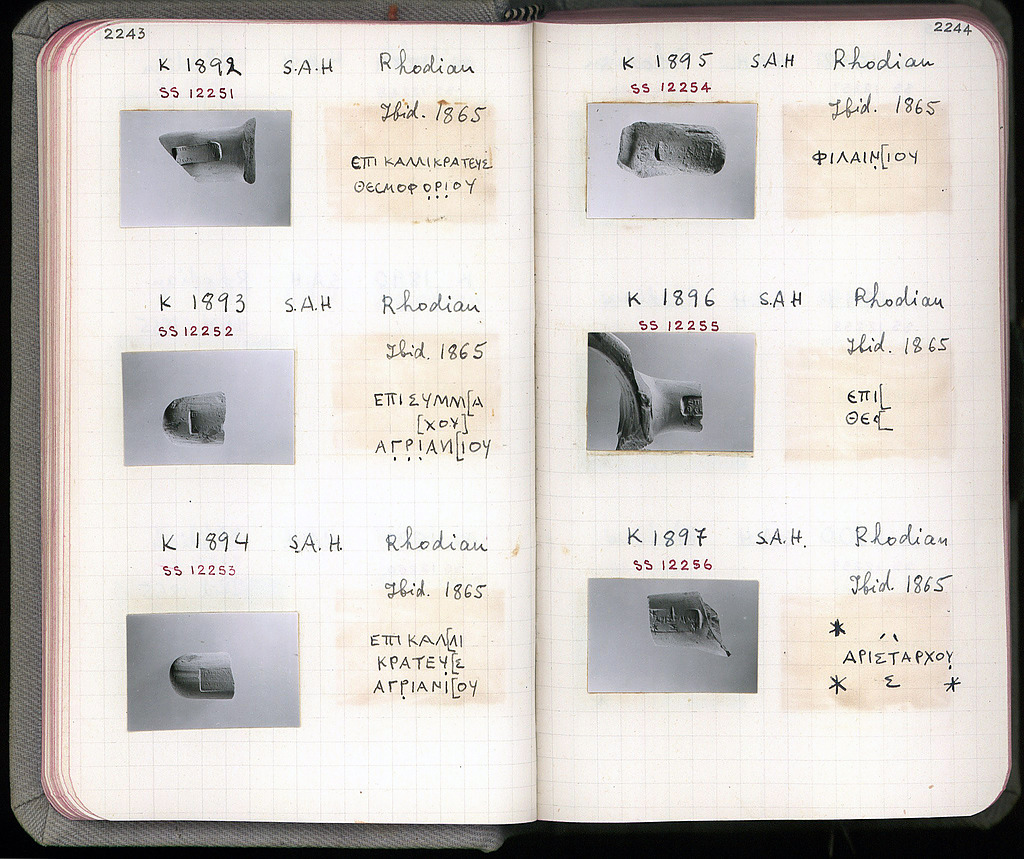 2243
K 1892 S.A.H Rhodian
SS 12251
Ibid. 1865
ΕΠΙ ΚΑΛΛΙΚΡΑΤΕΥΣ
ΘΕCΜΟΦΟ̣Ρ̣Ι̣ΟΥ
K 1893 S.A.H Rhodian
SS 12252
Ibid. 1865
ΕΠΙ ΣΥΜΜ[Α
[ΧΟΥ]
ΑΓ̣Ρ̣Ι̣ΑΝ[ΙΟΥ
K 1894 S.A.H. Rhodian
SS 12253
Ibid. 1865
ΕΠΙ ΚΑΛ[ΛΙ
ΚΡΑΤΕΥ̣[Σ
ΑΓΡ̣ΙΑΝΙ[ΟΥ
2244
K 1895 S.A.H Rhodian
SS 12254
Ibid. 1865
ΦΙΛΑΙΝ̣[ΙΟΥ
K 1896 S.A.H Rhodian
SS 12255
Ibid. 1865
ΕΠΙ[
ΘΕC[
K 1897 S.A.H. Rhodian
SS 12256
Ibid. 1865
*
ΑΡΙΣΤΑΡΧΟΥ̣
* Σ *